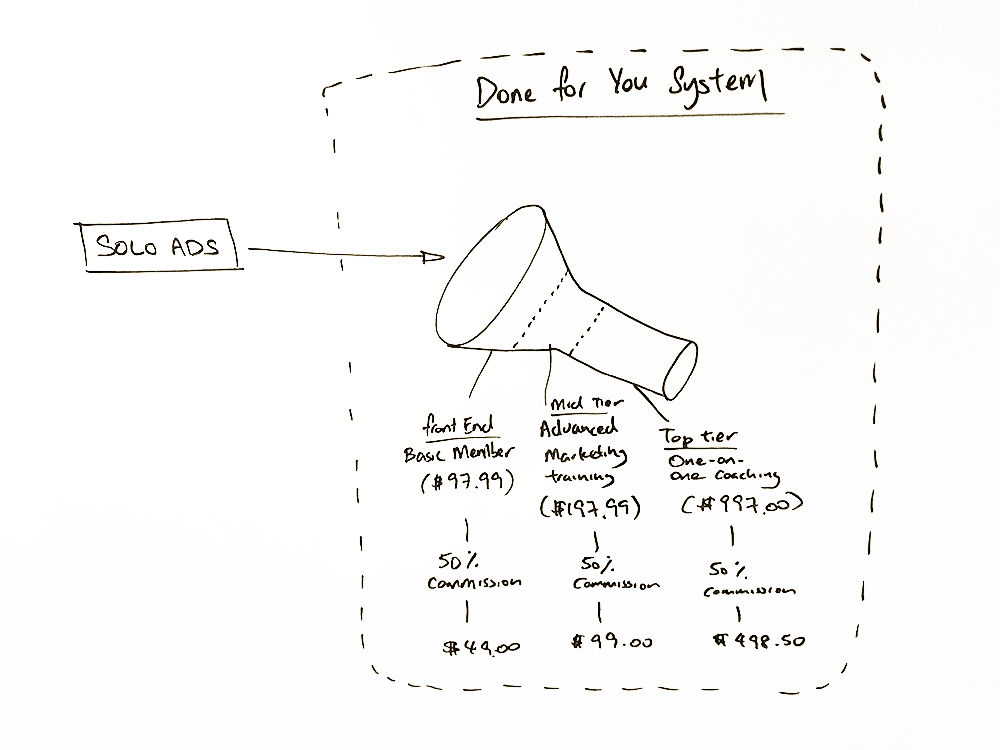 Done for You System
SOLO ADS
front End
Basic Member
($97.99)
50%
Commission
$49.00
Mid Tier
Advanced
Marketing
training
($197.99)
50%
Commission
$99.00
Top tier
One-on-
One Coaching
($997.00)
50%
Commission
$498.50